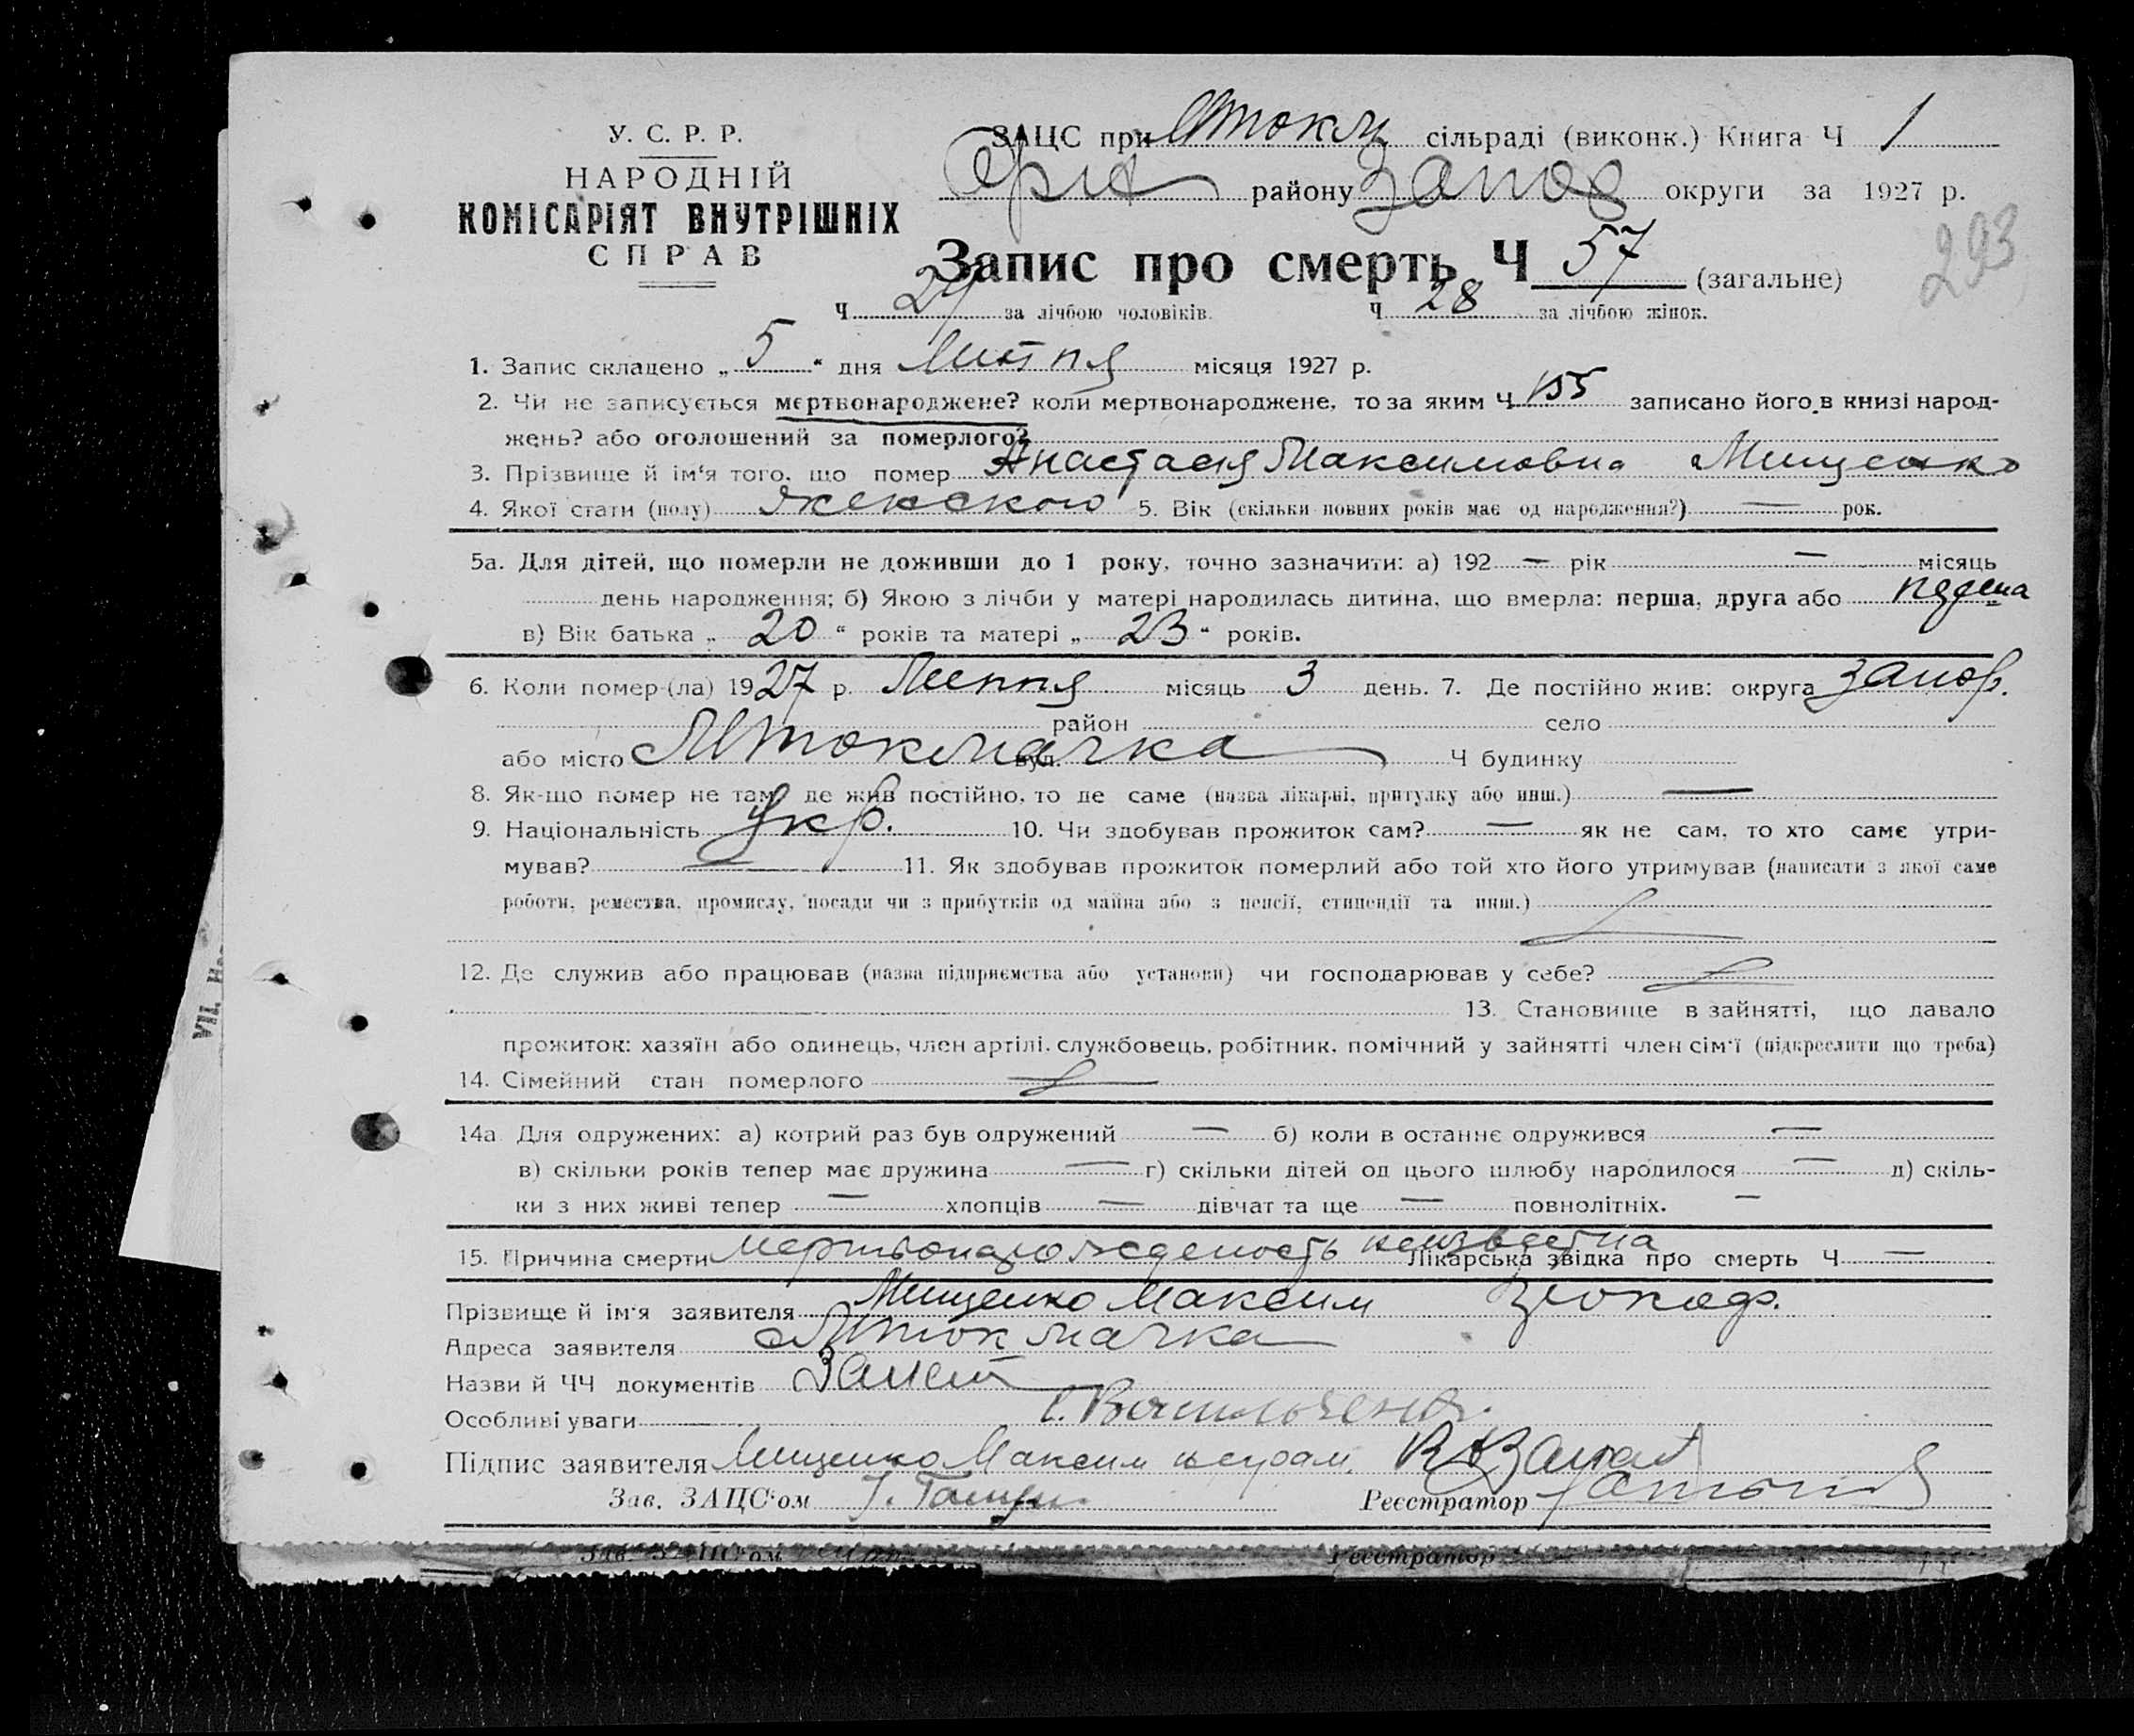 У. С. Р. Р.
НАРОДНІЙ
КОМІСАРІЯТ ВНУТРІШНІХ
СПРАВ
ЗАЦС при МТокм сільраді (виконк.) Книга Ч 1
району Запор округи за 1927 р.
293
Запис про смерть Ч 57 (загальне)
Ч 29 за лічбою чоловіків. Ч 28 за лічбою жінок.
1. Запис складено „ 5 “ дня Липня місяця 1927 р.
2. Чи не записується мертвонароджене? коли мертвонароджене, то за яким Ч 155 записано його в книзі народ-
жень? або оголошений за померлого?
3. Прізвище й ім‘я того, що помер Анастасия Максимовна Мищенко
4. Якої стати (полу) женского 5. Вік (скільки повних років має од народження?) — рок.
5а. Для дітей, що померли не доживши до 1 року, точно зазначити: а) 192 — рік — місяць
день народження; б) Якою з лічби у матері народилась дитина, що вмерла: перша, друга або
в) Вік батька „ 20 “ років та матері „ 23 “ років.
6. Коли помер-(ла) 1927 р. Липня місяць 3 день. 7. Де постійно жив: округа Запор.
район село
або місто МТокмачка вул. Ч будинку
8. Як-що помер не там, де жив постійно, то де саме (назва лікарні, притулку або инш.) —
9. Національність Укр. 10. Чи здобував прожиток сам? — як не сам, то хто саме утри-
мував? — 11. Як здобував прожиток померлий або той хто його утримував (написати з якої саме
роботи, ремества, промислу, посади чи з прибутків од майна або з пенсії, стипендії та инш.)
12. Де служив або працював (назва підприємства або установи) чи господарював у себе?
13. Становище в зайнятті, що давало
прожиток: хазяїн або одинець, член артілі, службовець, робітник, помічний у зайнятті член сім‘ї (підкреслити що треба)
14. Сімейний стан померлого
14а Для одружених: а) котрий раз був одружений — б) коли в останнє одружився —
в) скільки років тепер має дружина — г) скільки дітей од цього шлюбу народилося — д) скіль-
ки з них живі тепер — хлопців — дівчат та ще — повнолітніх. —
15. Причина смерти мертвонарожденость неизвестна Лікарська звідка про смерть Ч —
Прізвище й ім‘я заявителя Мищенко Максим
Адреса заявителя МТокмачка
Назви й ЧЧ документів
Особливі уваги
Підпис заявителя Мищенко Максим неграм.
Зав. ЗАЦС‘ом Реєстратор
Зав. ЗАЦС‘ом Реєстратор